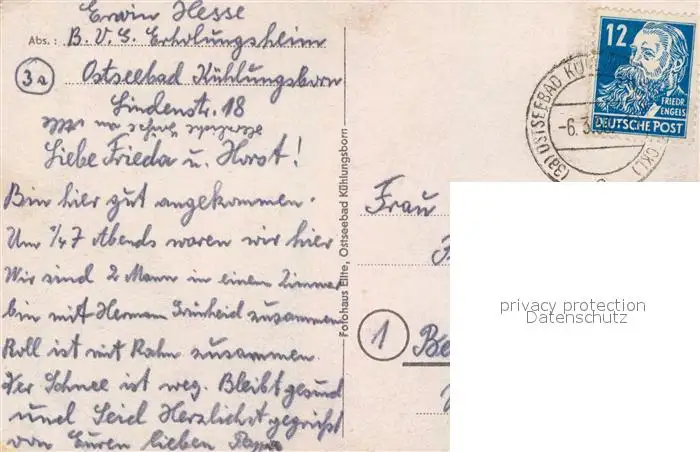 Erwin Hesse
Abs.: B. V. G. Erholungsheim
3a Ostseebad Kühlungsborn
Lindenstr. 18
Liebe Frieda u. Horst!
Bin hier gut angekommen.
Um 1/4 7 Abends waren wir hier
Wir sind 2 Mann in einem Zimmer
bin mit Herman zusammen
Roll ist mit Rahn zusammen.
Der Schnee ist weg. Bleibt gesund
und Seid Herzlichst gegrüßt
von Euren lieben Papa
Fotohaus Elite, Ostseebad Kühlungsborn
12
FRIEDR.
ENGELS
DEUTSCHE POST
(3a) OSTSEEBAD
-6.3.
Frau
1
privacy protection
Datenschutz